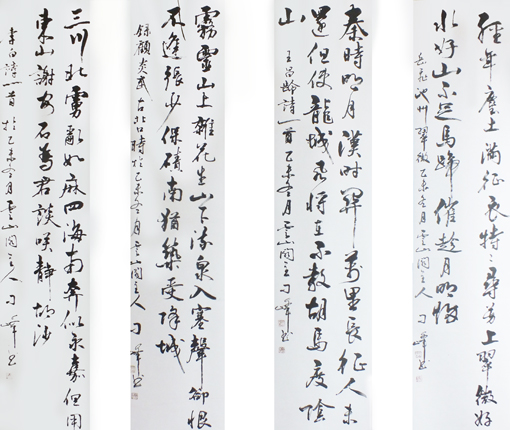 經年塵土滿征衣特々尋芳上翠微好
水好山不足馬蹄催趁月明歸
岳飛池州翠微乙未冬月雲山閣主人刁峰書
秦時明月漢時關萬里長征人未
還但使龍城飛將在不教胡馬度陰
山
王昌齡詩一首乙未冬月雲山閣主刁峰書
霧靈山上雜花生山下流泉入塞聲卻恨
不逢張少保磧南猶築受降城
錄顧炎武古北口詩於乙未冬月雲山閣主人刁峰書
三川北虜亂如麻四海南奔似永嘉但用
東山謝安石為君談笑靜胡沙
李白詩一首於乙未冬月雲山閣主人刁峰書